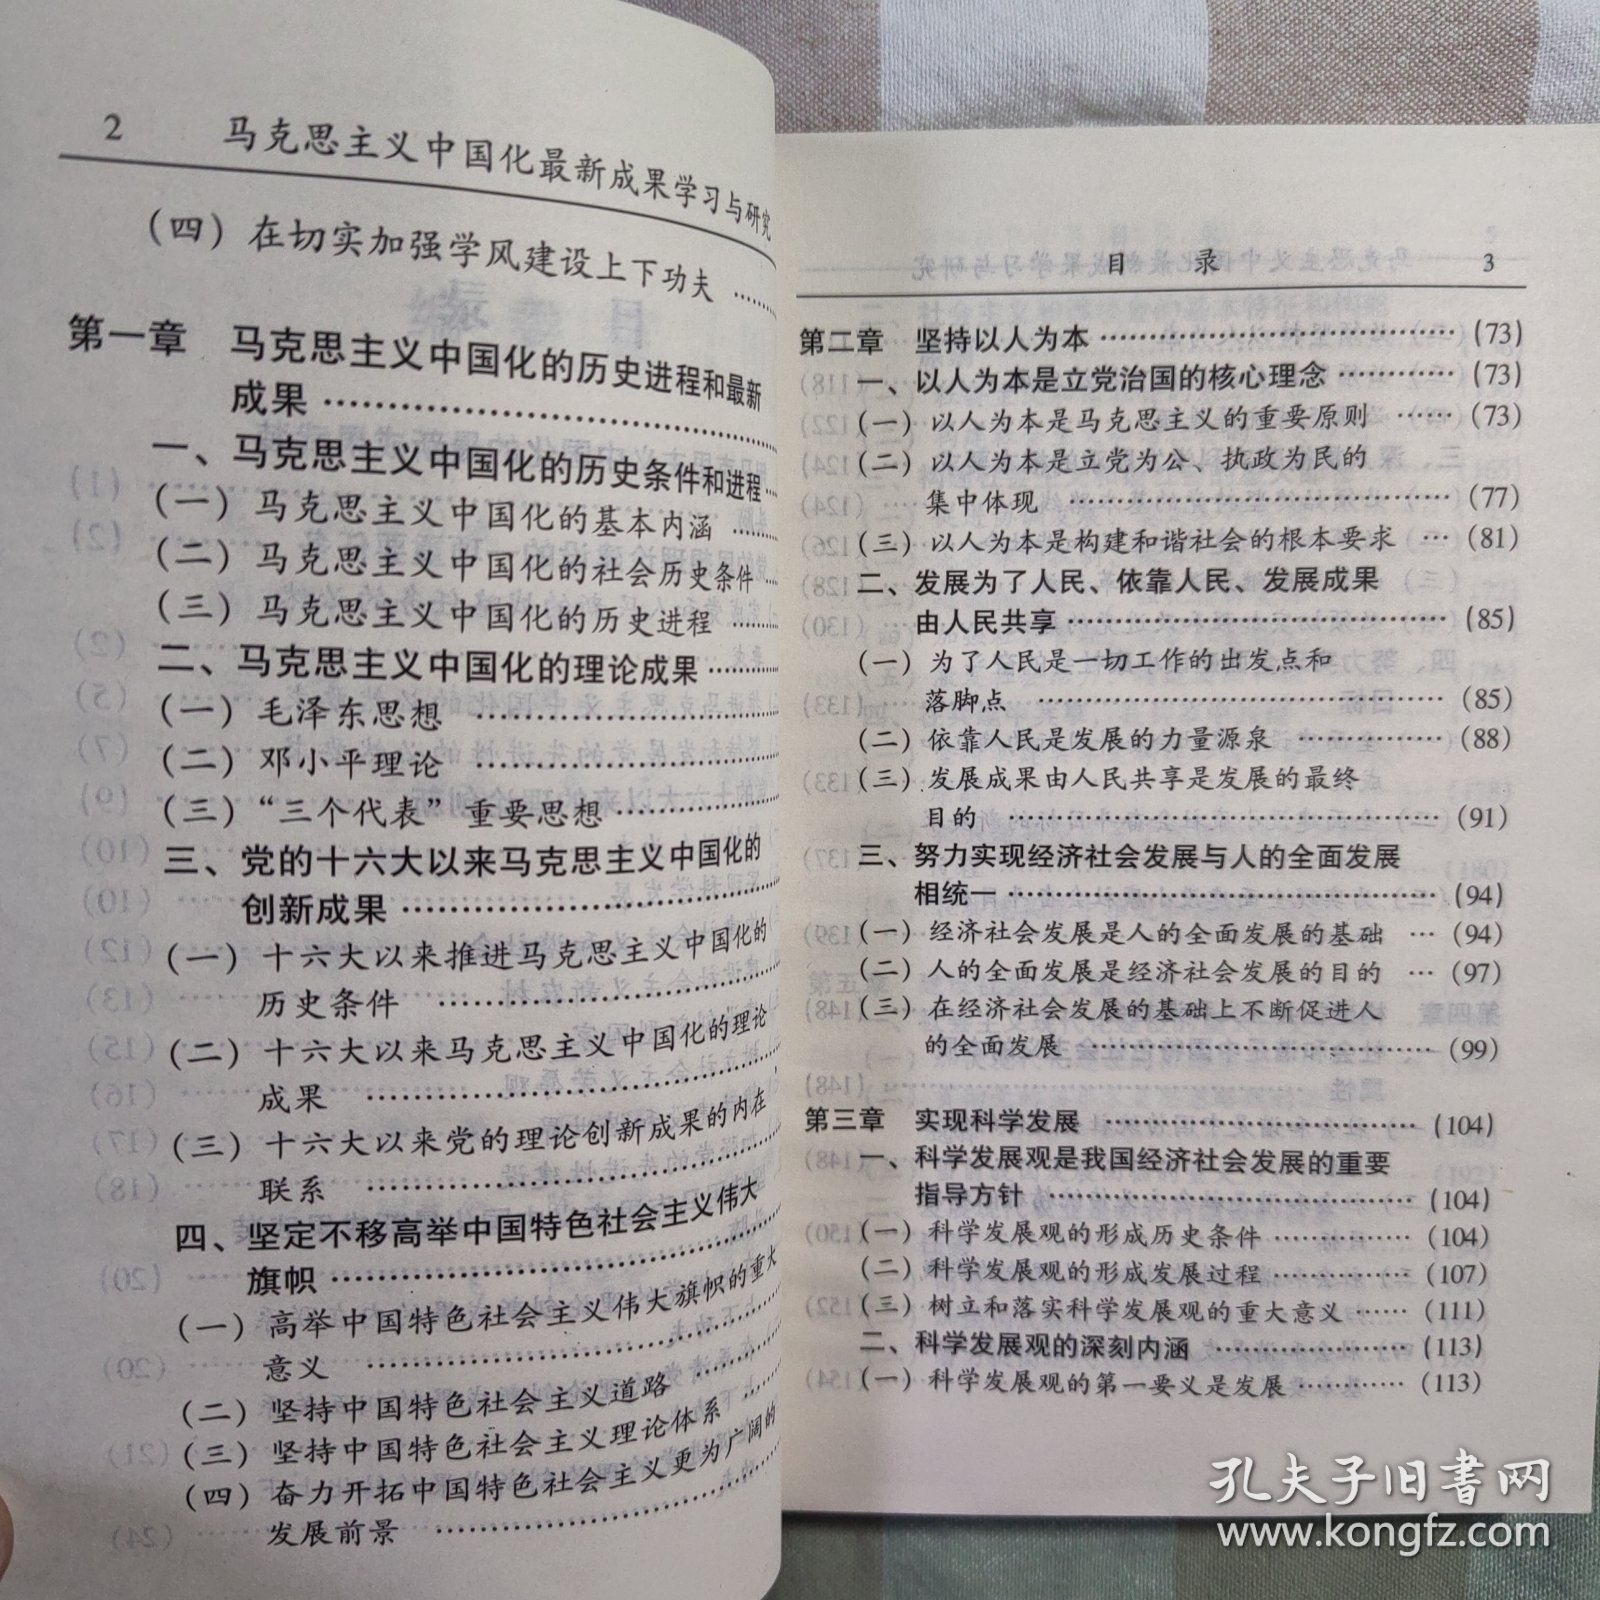 2 马克思主义中国化最新成果学习与研究
(四) 在切实加强学风建设上下功夫 ……
第一章 马克思主义中国化的历史进程和最新
成果 ……
一、马克思主义中国化的历史条件和进程 …
(一) 马克思主义中国化的基本内涵 ……
(二) 马克思主义中国化的社会历史条件 …
(三) 马克思主义中国化的历史进程 ……
二、马克思主义中国化的理论成果 ……
(一) 毛泽东思想 ……
(二) 邓小平理论 ……
(三) “三个代表”重要思想 ……
三、党的十六大以来马克思主义中国化的
创新成果 ……
(一) 十六大以来推进马克思主义中国化的
历史条件 ……
(二) 十六大以来马克思主义中国化的理论
成果 ……
(三) 十六大以来党的理论创新成果的内在
联系 ……
四、坚定不移高举中国特色社会主义伟大
旗帜 ……
(一) 高举中国特色社会主义伟大旗帜的重大
意义 ……
(二) 坚持中国特色社会主义道路 ……
(三) 坚持中国特色社会主义理论体系 ……
(四) 奋力开拓中国特色社会主义更为广阔的
发展前景 ……
目 录 3
第二章 坚持以人为本 …… (73)
一、以人为本是立党治国的核心理念 …… (73)
(一) 以人为本是马克思主义的重要原则 …… (73)
(二) 以人为本是立党为公、执政为民的
集中体现 …… (77)
(三) 以人为本是构建和谐社会的根本要求 … (81)
二、发展为了人民、依靠人民、发展成果
由人民共享 …… (85)
(一) 为了人民是一切工作的出发点和
落脚点 …… (85)
(二) 依靠人民是发展的力量源泉 …… (88)
(三) 发展成果由人民共享是发展的最终
目的 …… (91)
三、努力实现经济社会发展与人的全面发展
相统一 …… (94)
(一) 经济社会发展是人的全面发展的基础 … (94)
(二) 人的全面发展是经济社会发展的目的 … (97)
(三) 在经济社会发展的基础上不断促进人
的全面发展 …… (99)
第三章 实现科学发展 …… (104)
一、科学发展观是我国经济社会发展的重要
指导方针 …… (104)
(一) 科学发展观的形成历史条件 …… (104)
(二) 科学发展观的形成发展过程 …… (107)
(三) 树立和落实科学发展观的重大意义 …… (111)
二、科学发展观的深刻内涵 …… (113)
(一) 科学发展观的第一要义是发展 …… (113)
孔夫子旧书网
www.kongfz.com